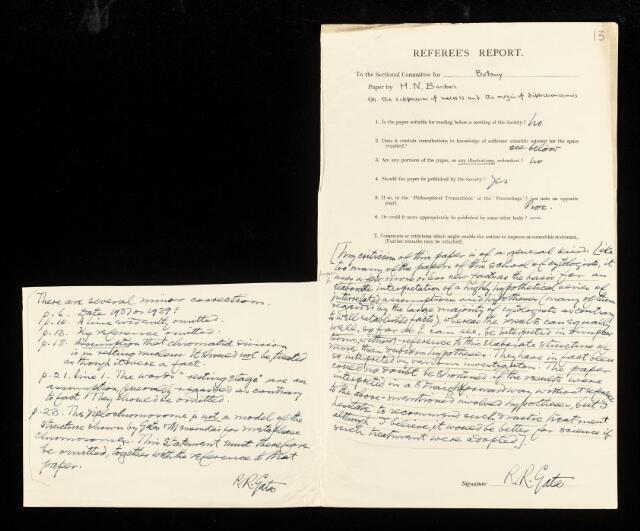 There are several minor corrections.
p. 6. Date 1937 or 1939?
p. 10. A line evidently omitted.
p. 13. My reference omitted.
p. 18. Assumption that chromatid division
is in resting nucleus. It should not be treated
as though it were a fact.
p. 21. line 1. The words "resting stage" are an
assumption generally regarded as contrary
to fact. They should be omitted.
p. 23. The diplochromosome is not a model of the
structure shown by Gates & for metaphase
chromosomes. This statement must therefore
be omitted, together with the reference to that
paper.
R. R. Gates
13
REFEREE'S REPORT.
To the Sectional Committee for Botany
Paper by H. N. Barber
On the suppression of meiosis and the origin of diplochromosomes
1. Is the paper suitable for reading before a meeting of the Society? No
2. Does it contain contributions to knowledge of sufficient scientific interest for the space
required? see below
3. Are any portions of the paper, or any illustrations, redundant? No
4. Should the paper be published by the Society? Yes
5. If so, in the "Philosophical Transactions" or the "Proceedings"? (see note on opposite
page). Proc.
6. Or could it more appropriately be published by some other body? —
7. Comments or criticisms which might enable the author to improve or correct his statement.
(Further remarks may be attached).
[My criticism of this paper is of a general kind. Like
too many of the papers of this school of cytologists, it
uses a few more or less new facts as the basis for an
elaborate interpretation of a highly hypothetical series of
interrelated assumptions and hypotheses (many of them
regarded by the large majority of cytologists as contrary
to well established facts), whereas the results can equally
well, so far as I can see, be interpreted in simpler
terms, without reference to this elaborate structure of
more than dubious hypotheses. They have in fact been
so interpreted by various investigators. The paper
could no doubt be shortened if the results were
interpreted in a straightforward way without reference
to the above-mentioned involved hypotheses, but I
hesitate to recommend such drastic treatment
although I believe it would be better for science if
such treatment were adopted].
Signature R. R. Gates